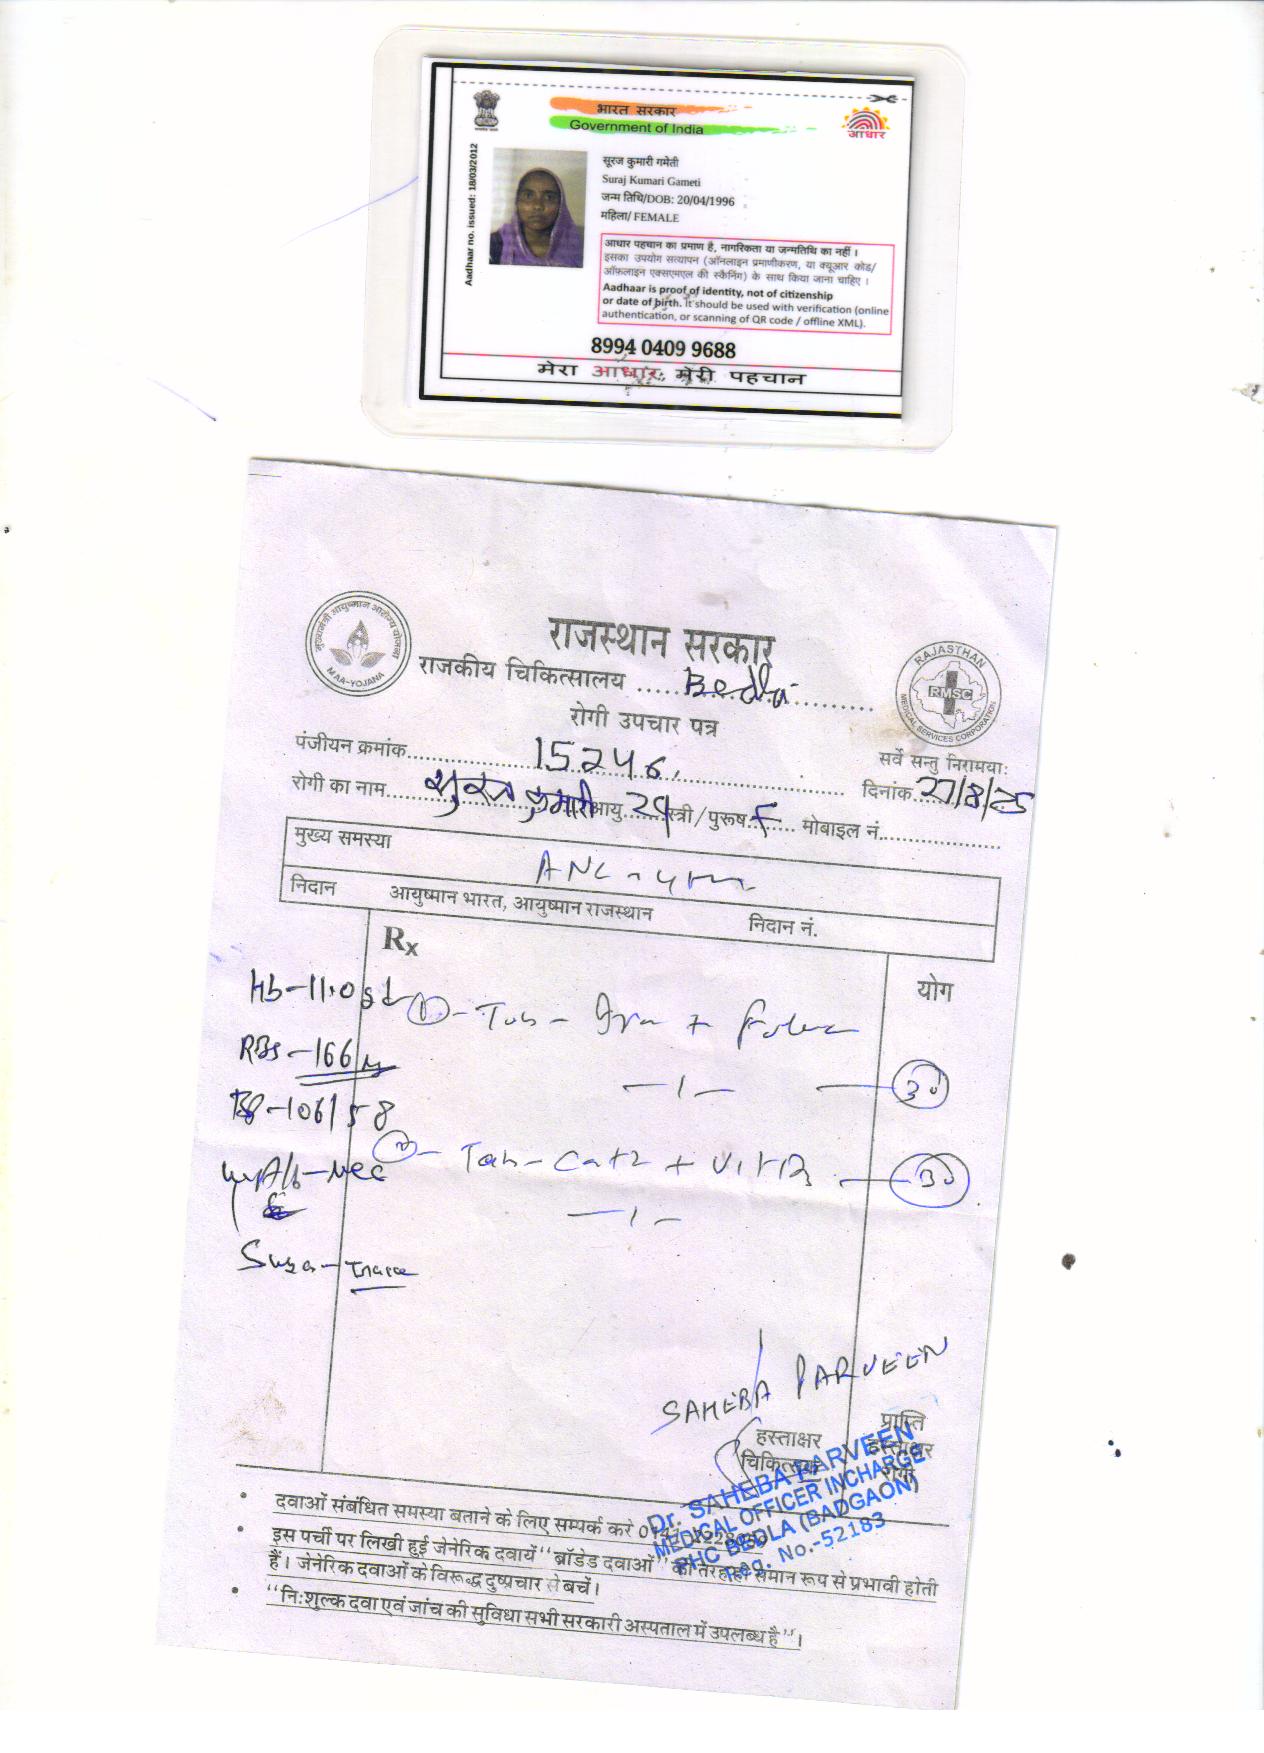 भारत सरकार
Government of India
आधार
Aadhaar no. issued: 18/03/2012
सूरज कुमारी गमेती
Suraj Kumari Gameti
जन्म तिथि/DOB: 20/04/1996
महिला/ FEMALE
आधार पहचान का प्रमाण है, नागरिकता या जन्मतिथि का नहीं ।
इसका उपयोग सत्यापन (ऑनलाइन प्रमाणीकरण, या क्यूआर कोड/
ऑफ़लाइन एक्सएमएल की स्कैनिंग) के साथ किया जाना चाहिए ।
Aadhaar is proof of identity, not of citizenship
or date of birth. It should be used with verification (online
authentication, or scanning of QR code / offline XML).
8994 0409 9688
मेरा आधार, मेरी पहचान
मुख्यमंत्री आयुष्मान आरोग्य योजना
MAA-YOJANA
राजस्थान सरकार
राजकीय चिकित्सालय Bedla
RAJASTHAN
RMSC
MEDICAL SERVICES CORPORATION
रोगी उपचार पत्र
सर्वे सन्तु निरामयाः
पंजीयन क्रमांक 15246
दिनांक 27/8/25
रोगी का नाम सुरज कुमारी आयु 29 स्त्री/पुरूष F मोबाइल नं.
मुख्य समस्या
ANC
निदान आयुष्मान भारत, आयुष्मान राजस्थान निदान नं.
Rx
योग
Hb-11.0 gd
① - Tab -
RBS -166
-1- 30
BP-106/58
② - Tab - + 30
-1-
Suga - Trace
SAHEBA PARVEEN
हस्ताक्षर
चिकित्सक
प्राप्ति
हस्ताक्षर
रोगी
Dr. SAHEBA PARVEEN
MEDICAL OFFICER INCHARGE
PHC BEDLA (BADGAON)
Reg. No.-52183
• दवाओं संबंधित समस्या बताने के लिए सम्पर्क करे
• इस पर्ची पर लिखी हुई जेनेरिक दवायें "ब्रॉडेड दवाओं" की तरह ही समान रूप से प्रभावी होती
हैं। जेनेरिक दवाओं के विरूद्ध दुष्प्रचार से बचें।
• "निःशुल्क दवा एवं जांच की सुविधा सभी सरकारी अस्पताल में उपलब्ध है"।